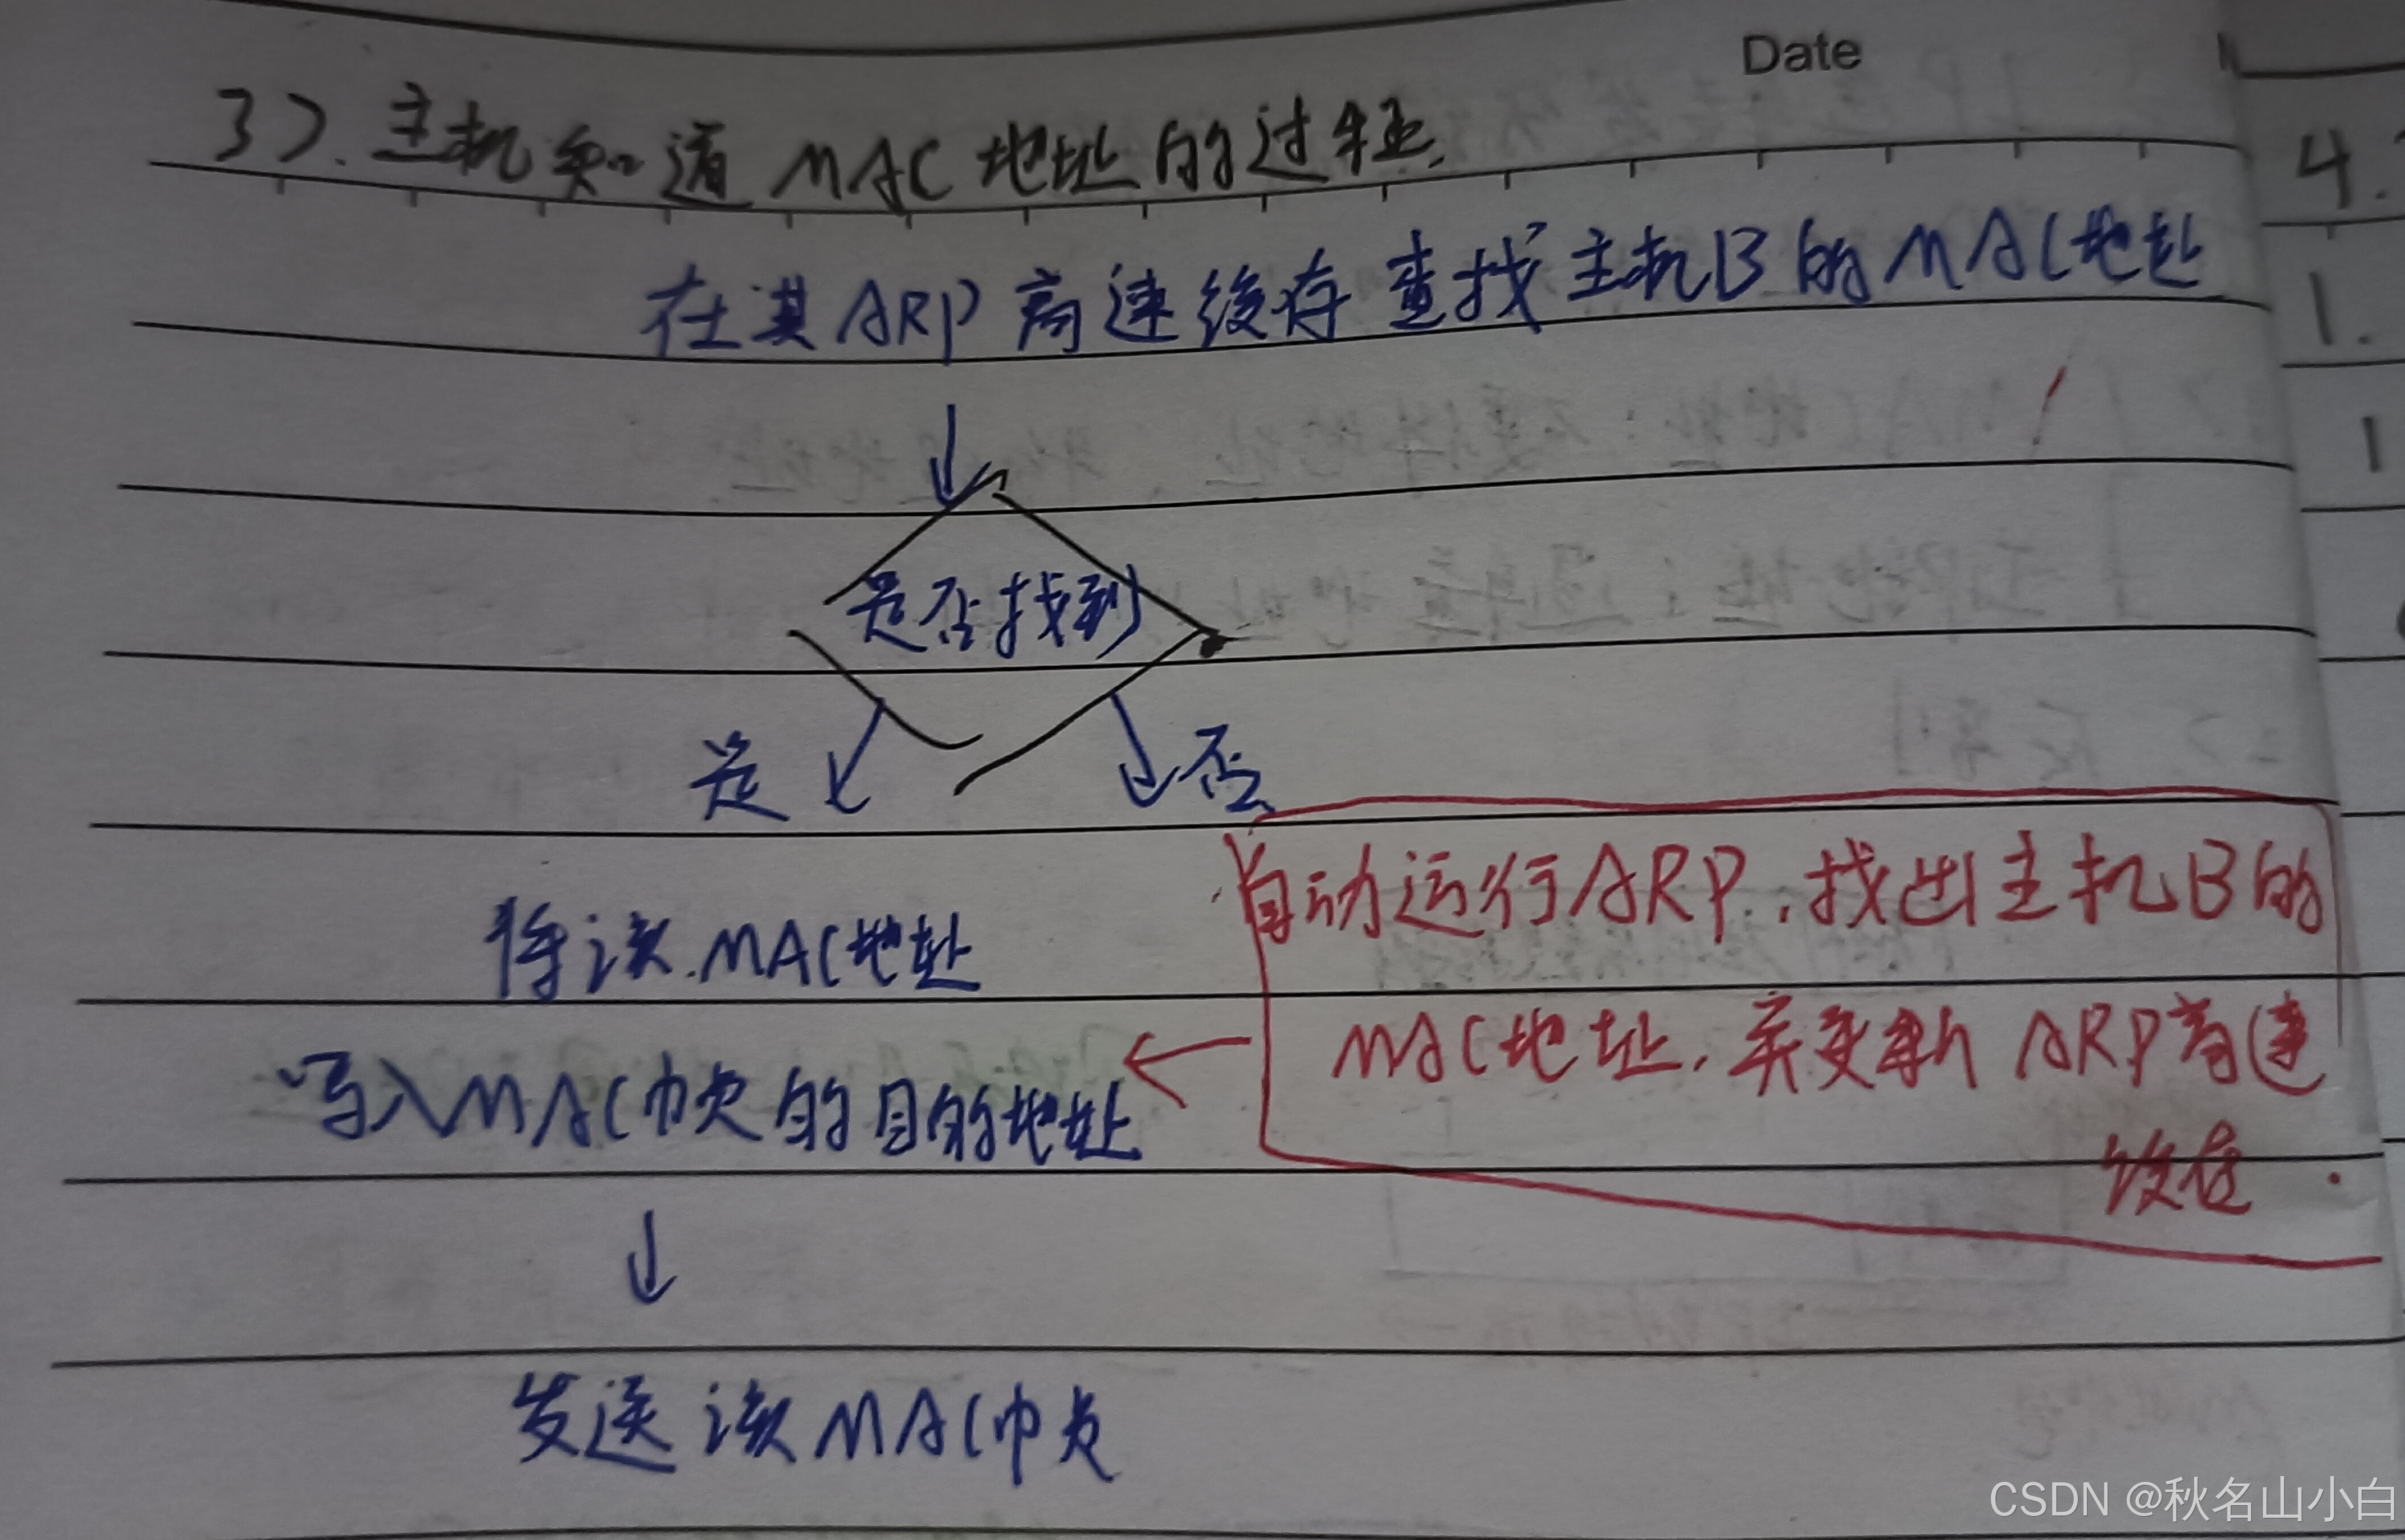 Date
3>. 主机知道MAC地址的过程.
在其ARP高速缓存查找主机B的MAC地址
是否找到
是
否
自动运行ARP.找出主机B的
MAC地址,并更新ARP高速
缓存.
将该MAC地址
写入MAC帧的目的地址
发送该MAC帧
4.
1.
1
CSDN @秋名山小白